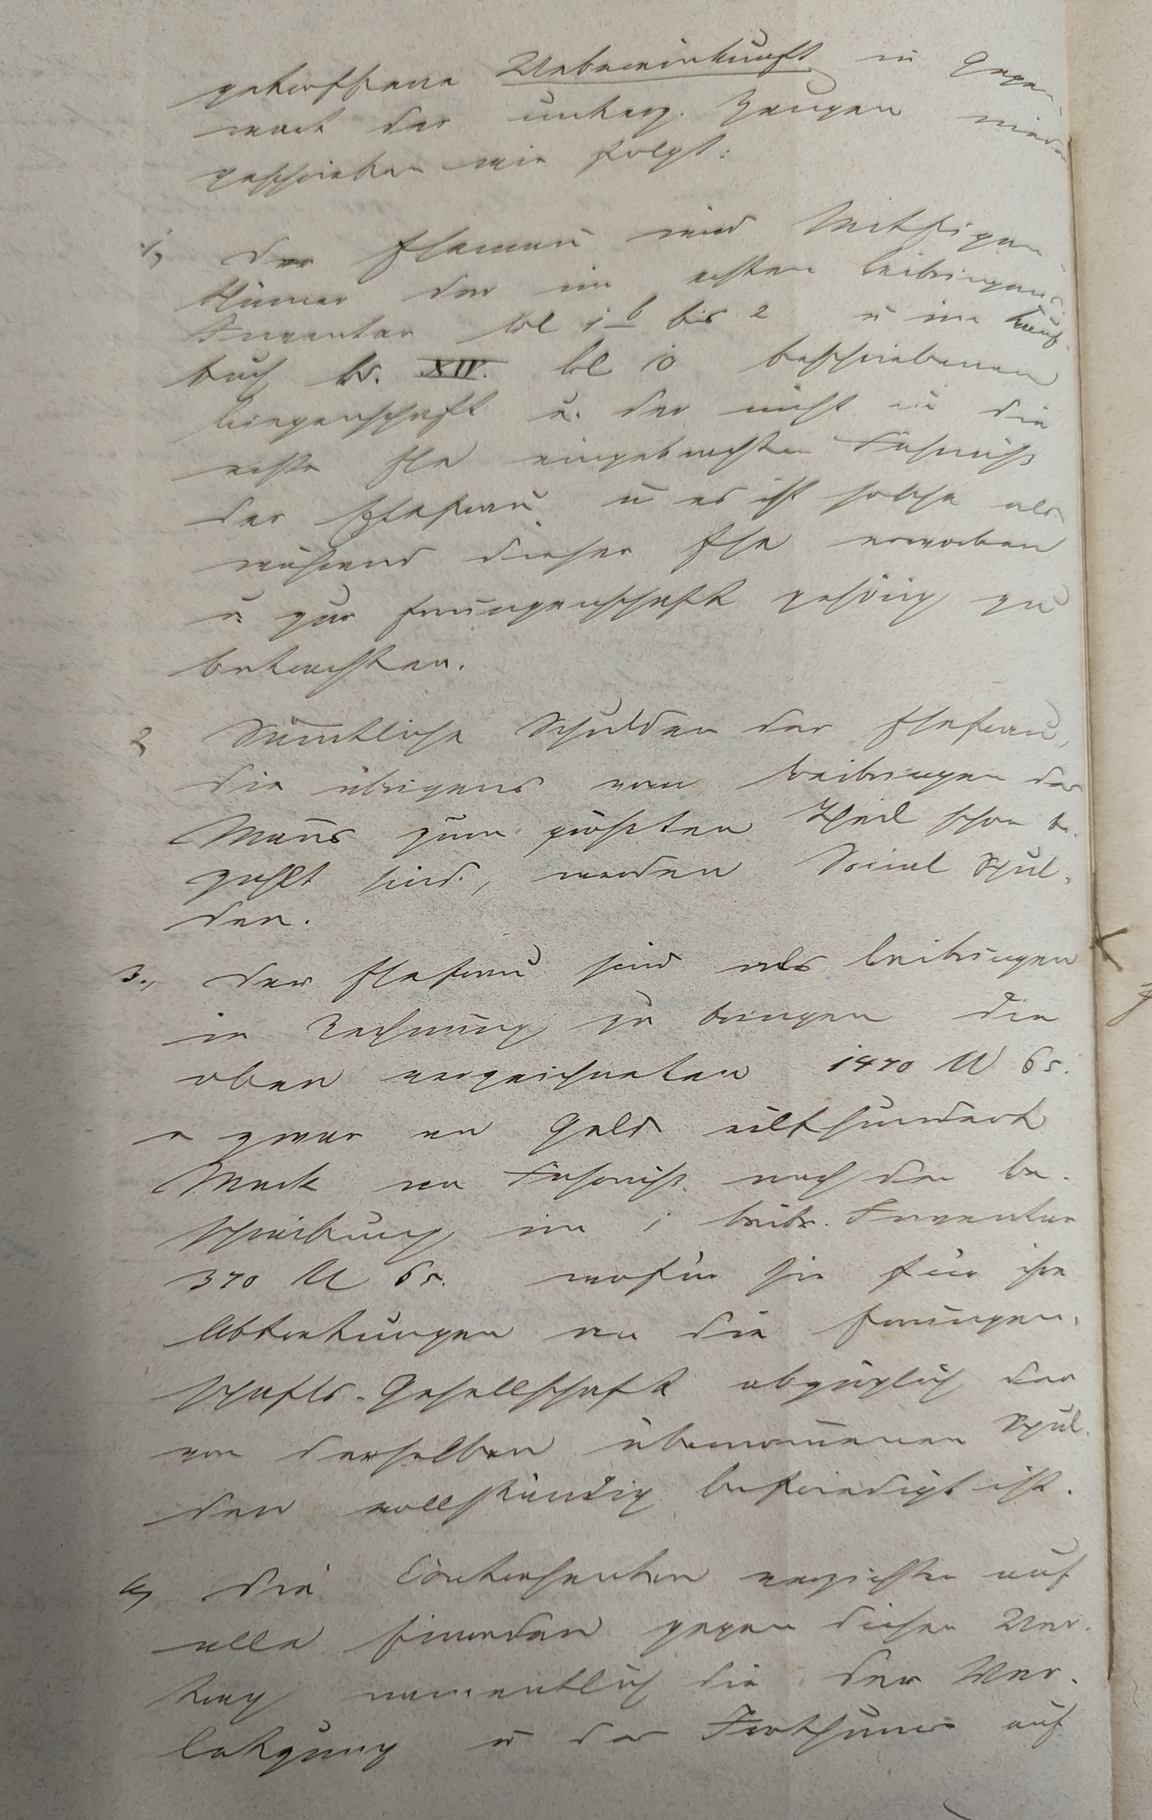 getroffene Uebereinkunft in Gegen-
wart der unterz. Zeugen nieder
geschrieben wie folgt:
1, Der Ehemann wird Miteigen-
thümer der im ersten Beibringens-
Inventar Bl 1 b bis 2 u im Kauf-
buch Bd. XIV. Bl 10 beschriebenen
Liegenschaft u. der nicht in die
erste Ehe eingebrachten Fahrniß
der Ehefrau u es ist solche als
während dieser Ehe erworben
u. zur Errungenschaft gehörig zu
betrachten.
2 Sämtliche Schulden der Ehefrau,
die übrigens vom Beibringen des
Manns zum größten Theil schon be-
zahlt sind, werden Social Schul-
den.
3., Der Ehefrau sind als Beibringen
in Rechnung zu bringen die
oben verzeichneten 1470 M 65.
u zwar an Geld eilfhundert
Mark an Fahrniß nach der Be-
schreibung im 1 Beibr. Inventar
370 M 65. wofür sie für ihre
Abtretungen an die Errungen-
schafts-Gesellschaft abzüglich der
von derselben übernommenen Schul-
den vollständig befriedigt ist.
4, Die Contrahenten verzichten auf
alle Einreden gegen diesen Ver-
trag namentlich die der Ver-
letzung u des Irrthums auf